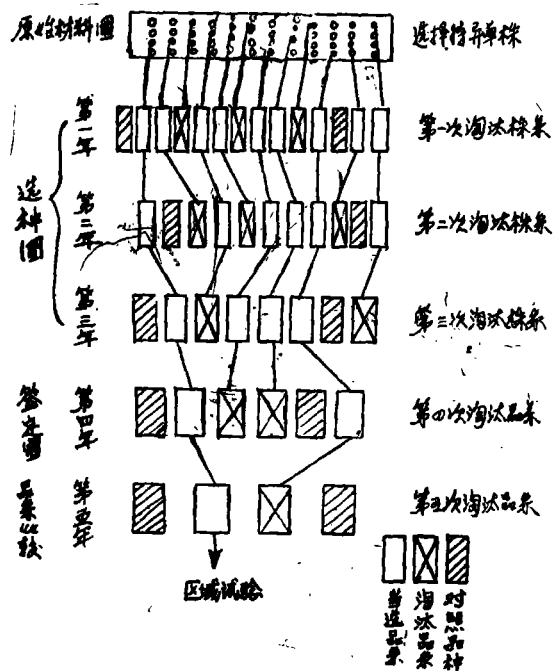 原始材料圃
选择特异单株
第一年
第一次淘汰株系
选种圃
第二年
第二次淘汰株系
第三年
第三次淘汰株系
签定圃
第四年
第四次淘汰品系
品系比较
第五年
第五次淘汰品系
区域试验
当选品系
淘汰品系
对照品种